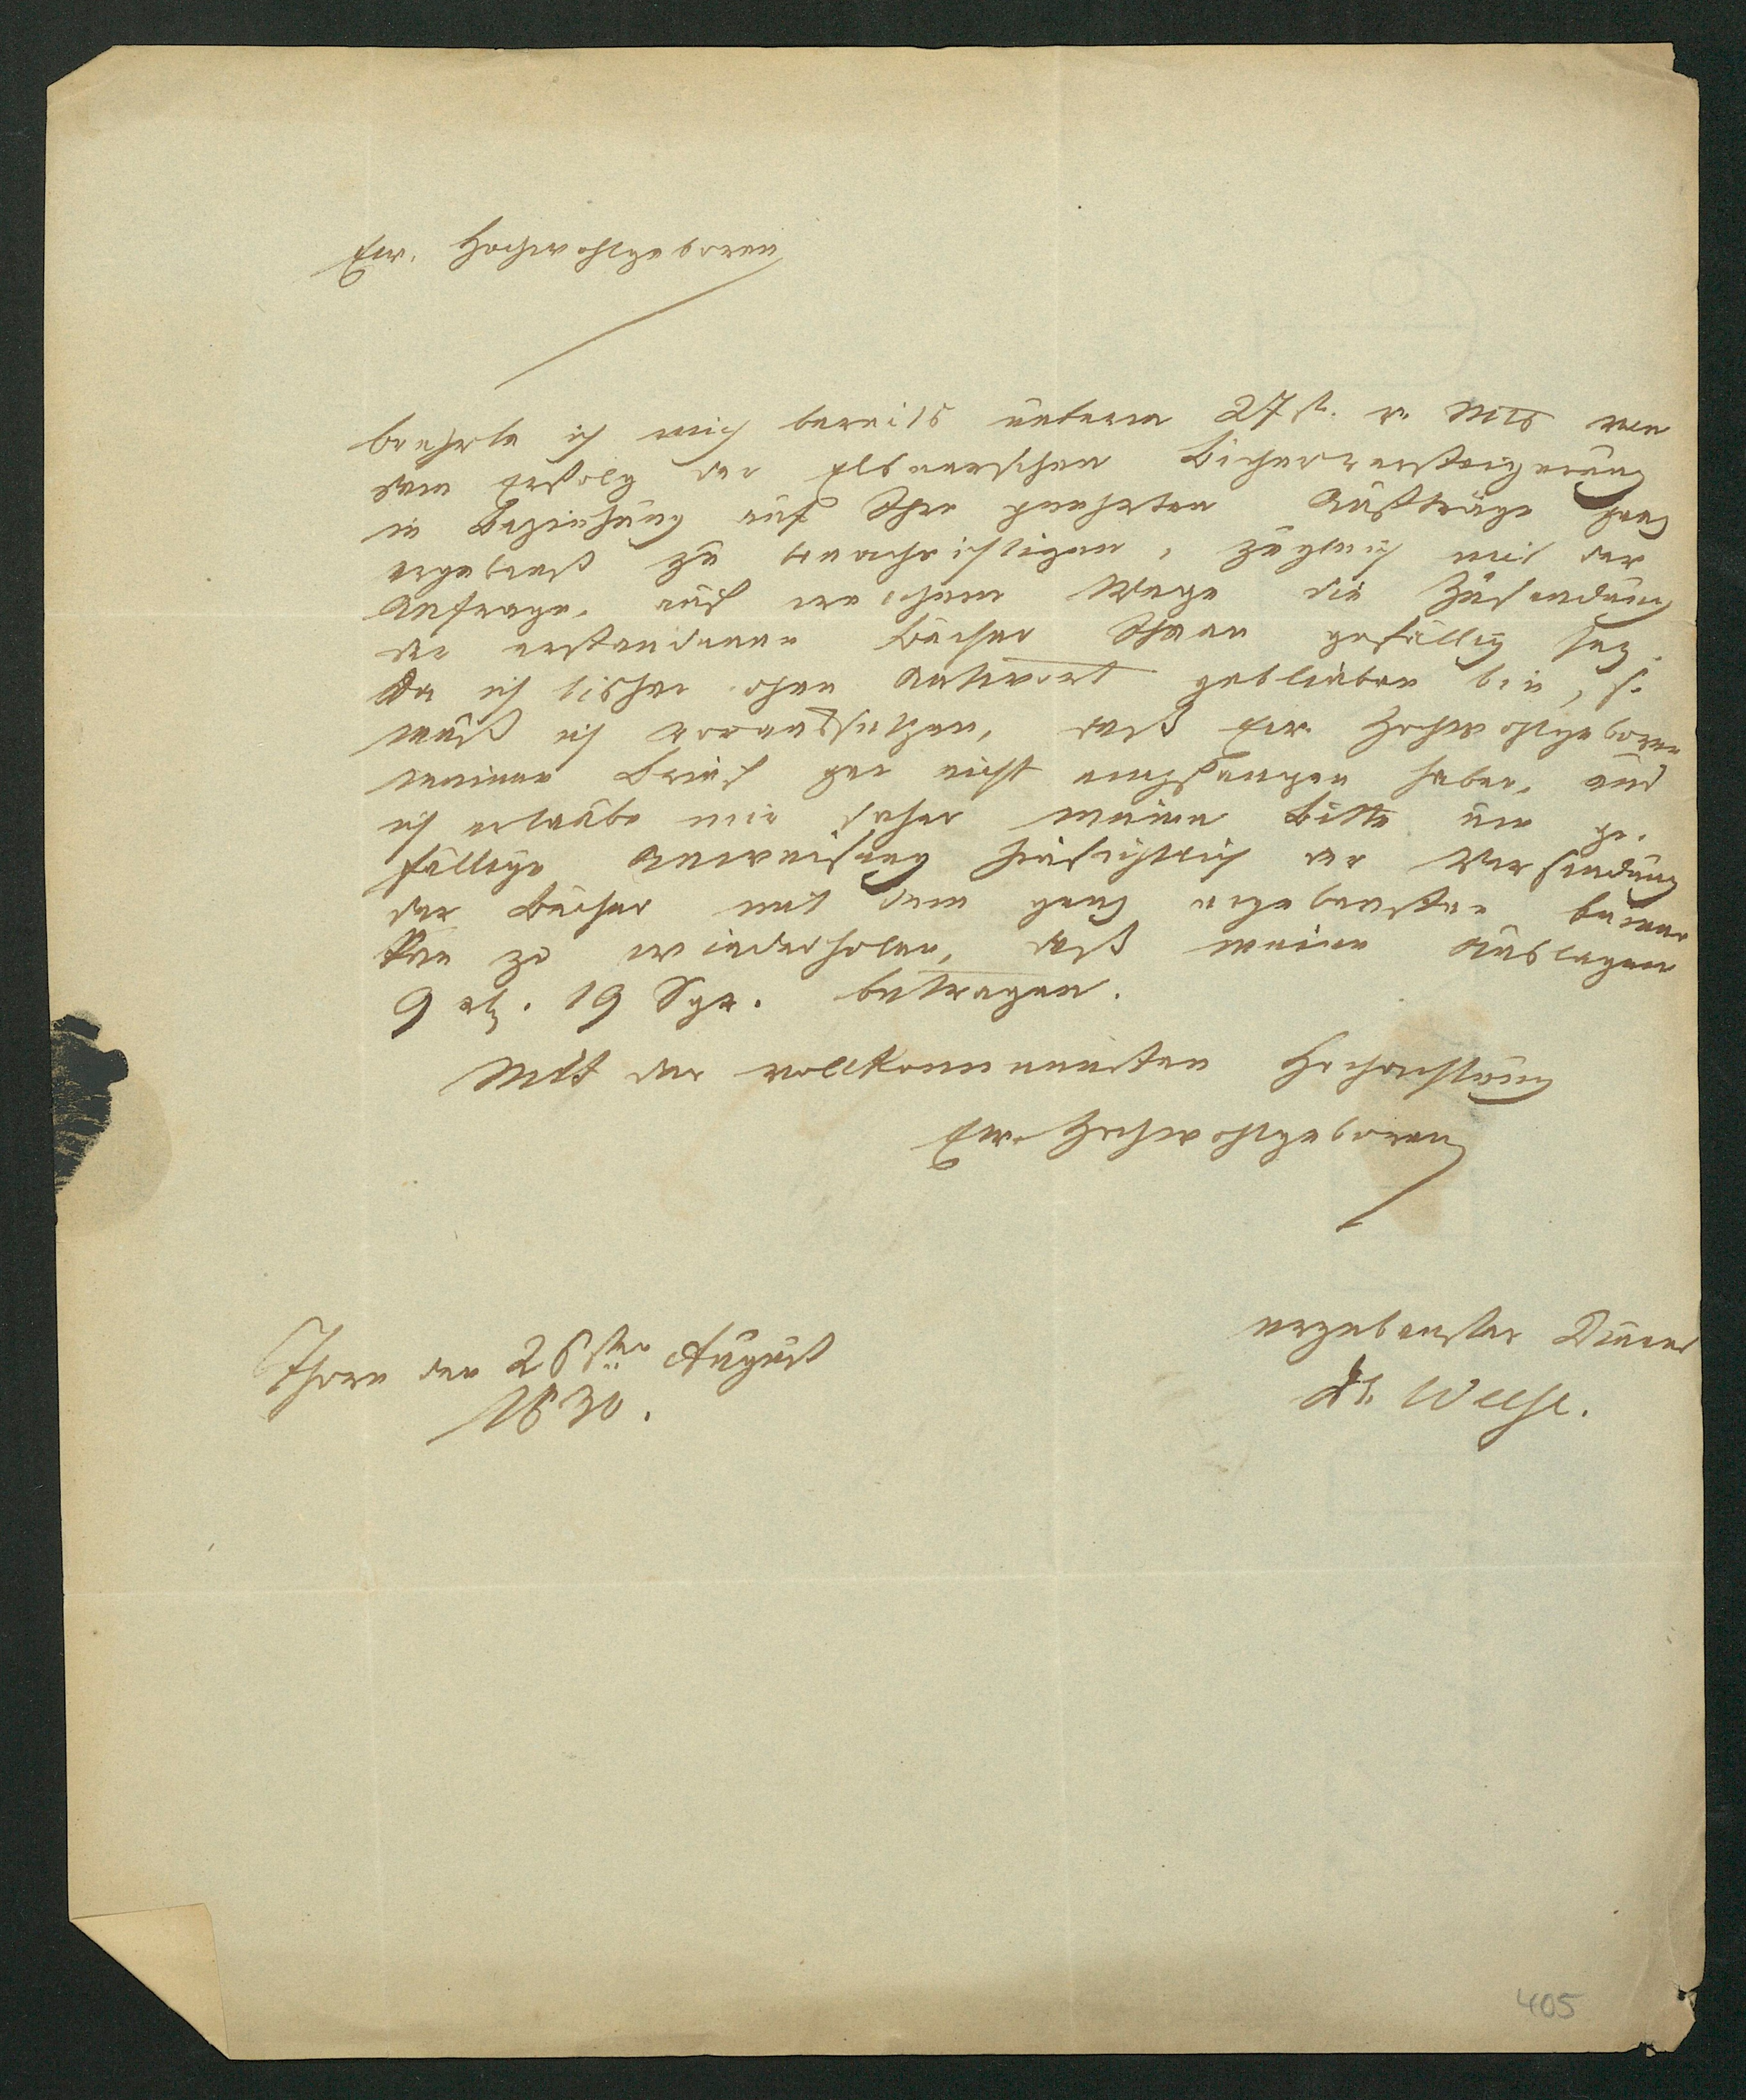 Ew. Hochwohlgeboren
beehrte ich mich bereits unterm 27st. v. Mts von
dem Erfolg der Elsnerschen Bücherversteigerung
in Beziehung auf Ihre geehrten Aufträge ganz
ergebenst zu benachrichtigen, zugleich mit der
Anfrage, auf welchem Wege die Zusendung
der erstandenen Bücher Ihnen gefällig sey.
Da ich bisher ohne Antwort geblieben bin, so
muß ich voraussetzen, daß Ew. Hochwohlgeboren
meinen Brief gar nicht empfangen haben, und
ich erlaube mir daher meine Bitte um ge-
fällige Anweisung hinsichtlich der Versendung
der Bücher mit dem ganz ergebensten bemer
ken zu wiederholen, daß meine Auslagen
9 rtl. 19 Sgr. betragen.
Mit der vollkommensten Hochachtung
Ew. Hochwohlgeboren
ergebenster Diener
Dr. Weese.
Thorn den 28sten August
1830.
405